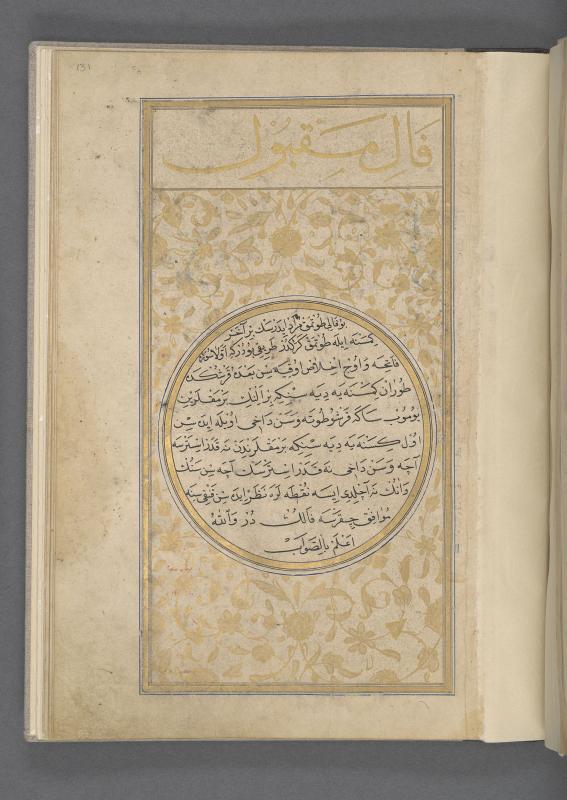 131
فَالِ مَقْبُول
بو فالی طوتمق مراد ایدرسك بر آخر
كمسنه ایله طوتمق كركدر طریقی بودركه اولا
فاتحه و اوچ اخلاص اوقیه سن بعده قرشكده
طوران كمسنه یه دیه سنكه بر الك بر مقلرین
یوموب ساكه قرشو طوته و سن داخی اویله ایده سن
اول كمسنه یه دیه سنكه برمقلرندن نه قدر استرسه
آچه و سن داخی نه قدر استرسك آچه سن سنك
و انك نه آچلدی ایسه نقطه لره نظر ایده سن قنغیسنه
موافق چقرسه فالك در والله
اعلم بالصواب